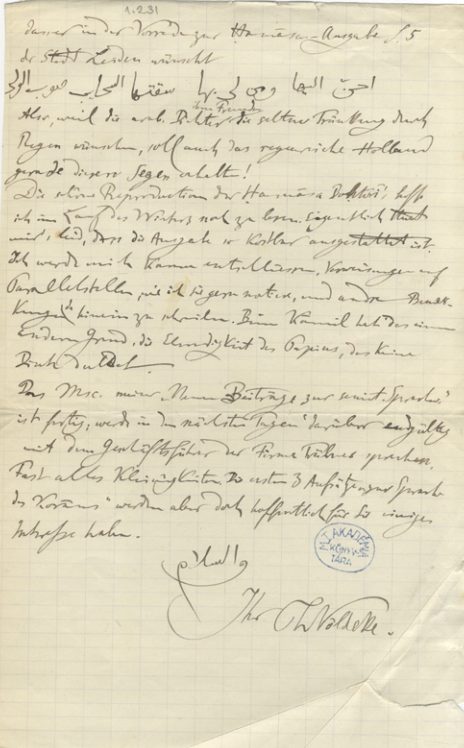 1.231
dass er in der Vorrede zur Hamāsa-Ausgabe S. 5
der Stadt Leiden wünscht
احنّ اليها ومن لى بها سقتها السحاب صوب الولى
Also, weil die arab. Dichter ihren Freunden die seltene Tränkung durch
Regen wünschen, soll auch das regnerische Holland
gerade diesen Segen erhalten!
Die schöne Reproduction der Hamāsa Boḥturī's hoffe
ich im Lauf des Winters noch zu lesen. Eigentlich thut
mir's leid, dass die Ausgabe so kostbar ausgestattet ist.
Ich werde mich kaum entschliessen, Verweisungen auf
Parallelstellen, wie ich sie gern notire, und andre Bemer-
kungen da hinein zu schreiben. Beim Kāmil hat das einen
andern Grund, die Elendigkeit des Papiers, das keine
Dinte duldet.
Das Msc. meiner „Neuen Beiträge zur semit. Sprachw."
ist fertig; werde in den nächsten Tagen darüber endgültig
mit dem Geschäftsführer der Firma Trübner sprechen.
Fast alles Kleinigkeiten. Die ersten 3 Aufsätze „zur Sprache
des Korāns" werden aber doch hoffentlich für Sie einiges
Interesse haben.
والسلام
M.T. AKADÉMIA
KÖNYV
TÁRA
Ihr ThNöldeke.